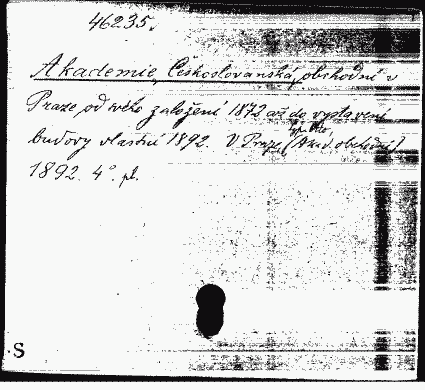 46235.
Akademie, Českoslovanská, obchodní v
Praze, od svého založení 1872 až do vystavení
budovy vlastní 1892. V Praze, (Akad. obchodní)
1892. 4°. pl.
S